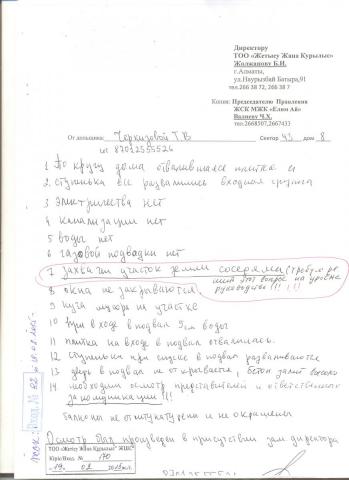 Директору
ТОО «Жетысу Жана Курылыс»
Жолжанову Б.И.
г.Алматы,
ул.Наурызбай Батыра,91
тел.266 38 72, 266 38 7
Копия: Председателю Правления
ЖСК МЖК «Елим Ай»
Валиеву Ч.Х.
тел.2668507,2667433
От дольщика: Черкизовой Т.В Сектор 43 дом 8
87012555526
1 По кругу дома отвалившаяся плитка
2 ступинька все развалились входная группа
3 электричества нет
4 канализации нет
5 воды нет
6 газовой подводки нет
7 захват участок земли соседями (требуем ре
шить этот вопрос на уровне
руководства !!! !!!
8 окна не закрываются
9 куча мусора на участке
10 при входе в подвал 9см воды
11 плитка на входе в подвал отвалилась.
12 ступеньки при спуске в подвал разваливаются
13 дверь в подвал не открывается, бетон залит высоко
14 необходим осмотр представителей и ответственного
за коммуникации !!!
Балконы не отштукатурены и не окрашены
Осмотр был произведен в присутствии зам директора
ТОО "Жетісу Жаңа Құрылыс" ЖШС
Кіріс/Вход. № 170